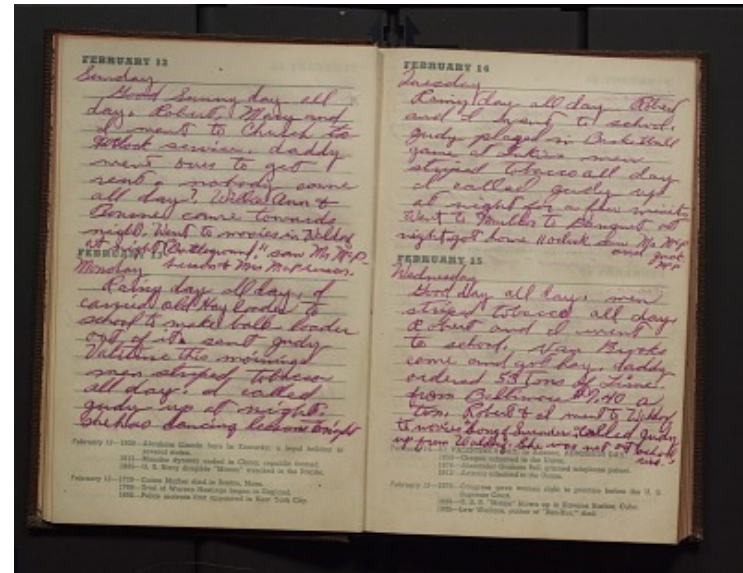 FEBRUARY 12
Sunday
Good Sunny day all
day. Robert, Mary and
I went to Church to
service. daddy
went over to get
rent. nobody came
all day? Willie Ann &
Bonnie came towards
night. Went to movies in Waldorf
at night "Battleground." saw Mr. McP-
FEBRUARY 13
Monday
Rainy day all day. I
carried old Hay loader to
school to make bale loader
out of it. sent Judy
Valentine this morning.
men striped tobacco
all day. I called
Judy up at night.
She Has dancing lessons tonight
February 12—1809—Abraham Lincoln born in Kentucky; a legal holiday in
several states.
1912—Manchu dynasty ended in China; republic formed.
February 13—1728—Cotton Mather died in Boston, Mass.
1788—Trial of Warren Hastings began in England.
FEBRUARY 14
Tuesday
Rainy day all day. Robert
and I went to school.
Judy played in Basketball
game at men
striped tobacco all day
I called Judy up
at night for a few minits
Went to Banquet at
night got home 11 oclock saw Mr. McP
and
McP
FEBRUARY 15
Wednesday
Good day all day. men
striped tobacco all day
Robert and I went
to school. Van Brooks
come and got hay. daddy
ordered 53 tons of Lime
from Baltimore $7.40 a
ton. Robert & I went to Waldorf
to movies "Song of Surrender." called Judy
up from Waldorf. She was not at school
ST. VALENTINE'S DAY; in Arizona, ADMISSION DAY.
1859—Oregon admitted to the Union.
1876—Alexander Graham Bell patented telephone patent.
1912—Arizona admitted to the Union.
February 15—1879—Congress gave women right to practice before the U. S.
Supreme Court.
1898—U. S. S. "Maine" blown up in Havana Harbor, Cuba.
1905—Lew Wallace, author of "Ben-Hur," died.